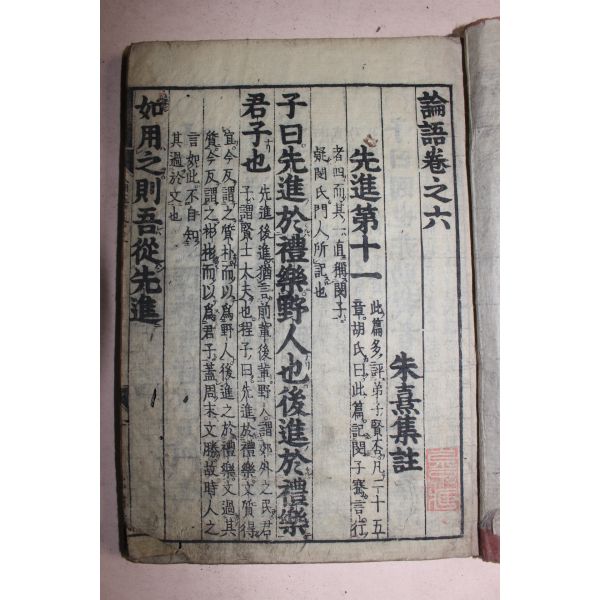 論語卷之六
朱熹集註
先進第十一
此篇多評弟子賢不凡二十五
章胡氏曰此篇記閔子騫言行
者四而其一直稱閔子
疑閔氏門人所記也
子曰先進於禮樂野人也後進於禮樂
君子也
先進後進猶言前輩後輩野人謂郊外之民君
子謂賢士大夫也程子曰先進於禮樂文質得
宜今反謂之質朴而以爲野人後進之於禮樂文過其
質今反謂之彬彬而以爲君子蓋周末文勝故時人之
言如此不自知
其過於文也
如用之則吾從先進